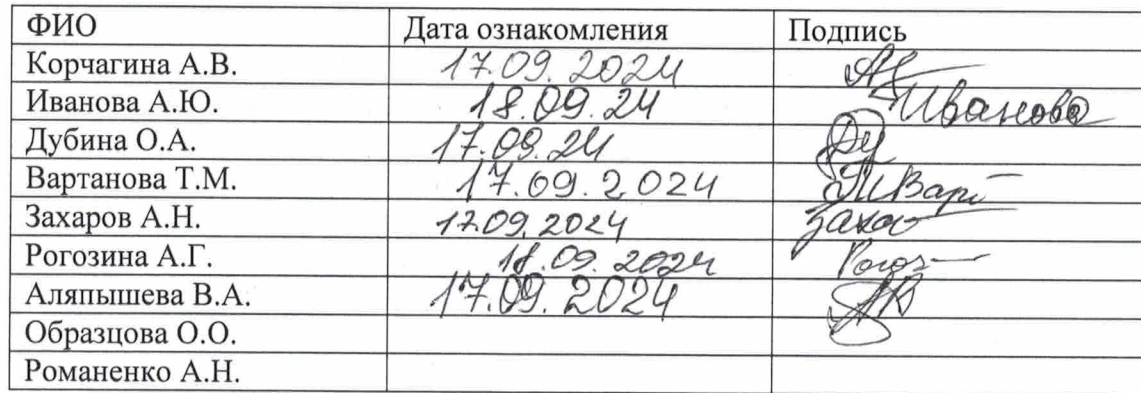 ФИО Дата ознакомления Подпись
Корчагина А.В. 17.09.2024
Иванова А.Ю. 18.09.24 Иванова
Дубина О.А. 17.09.24 Ду
Вартанова Т.М. 17.09.2024
Захаров А.Н. 17.09.2024
Рогозина А.Г. 18.09.2024 Рогоз
Аляпышева В.А. 17.09.2024
Образцова О.О.
Романенко А.Н.